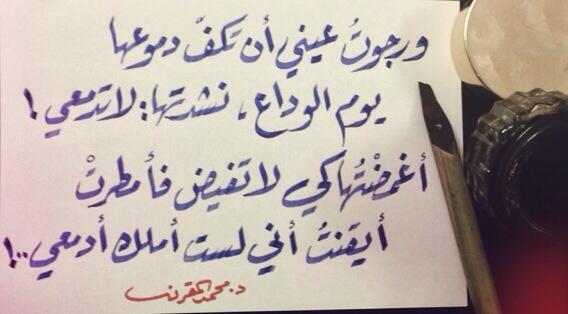 ورجوتُ عيني أن تكفّ دموعها
يوم الوداع، نشدتها: لا تدمعي!
أغمضْتُها كي لا تفيض فأمطرتْ
أيقنتُ أني لست أملك أدمعي..!
د. محمد المقرن